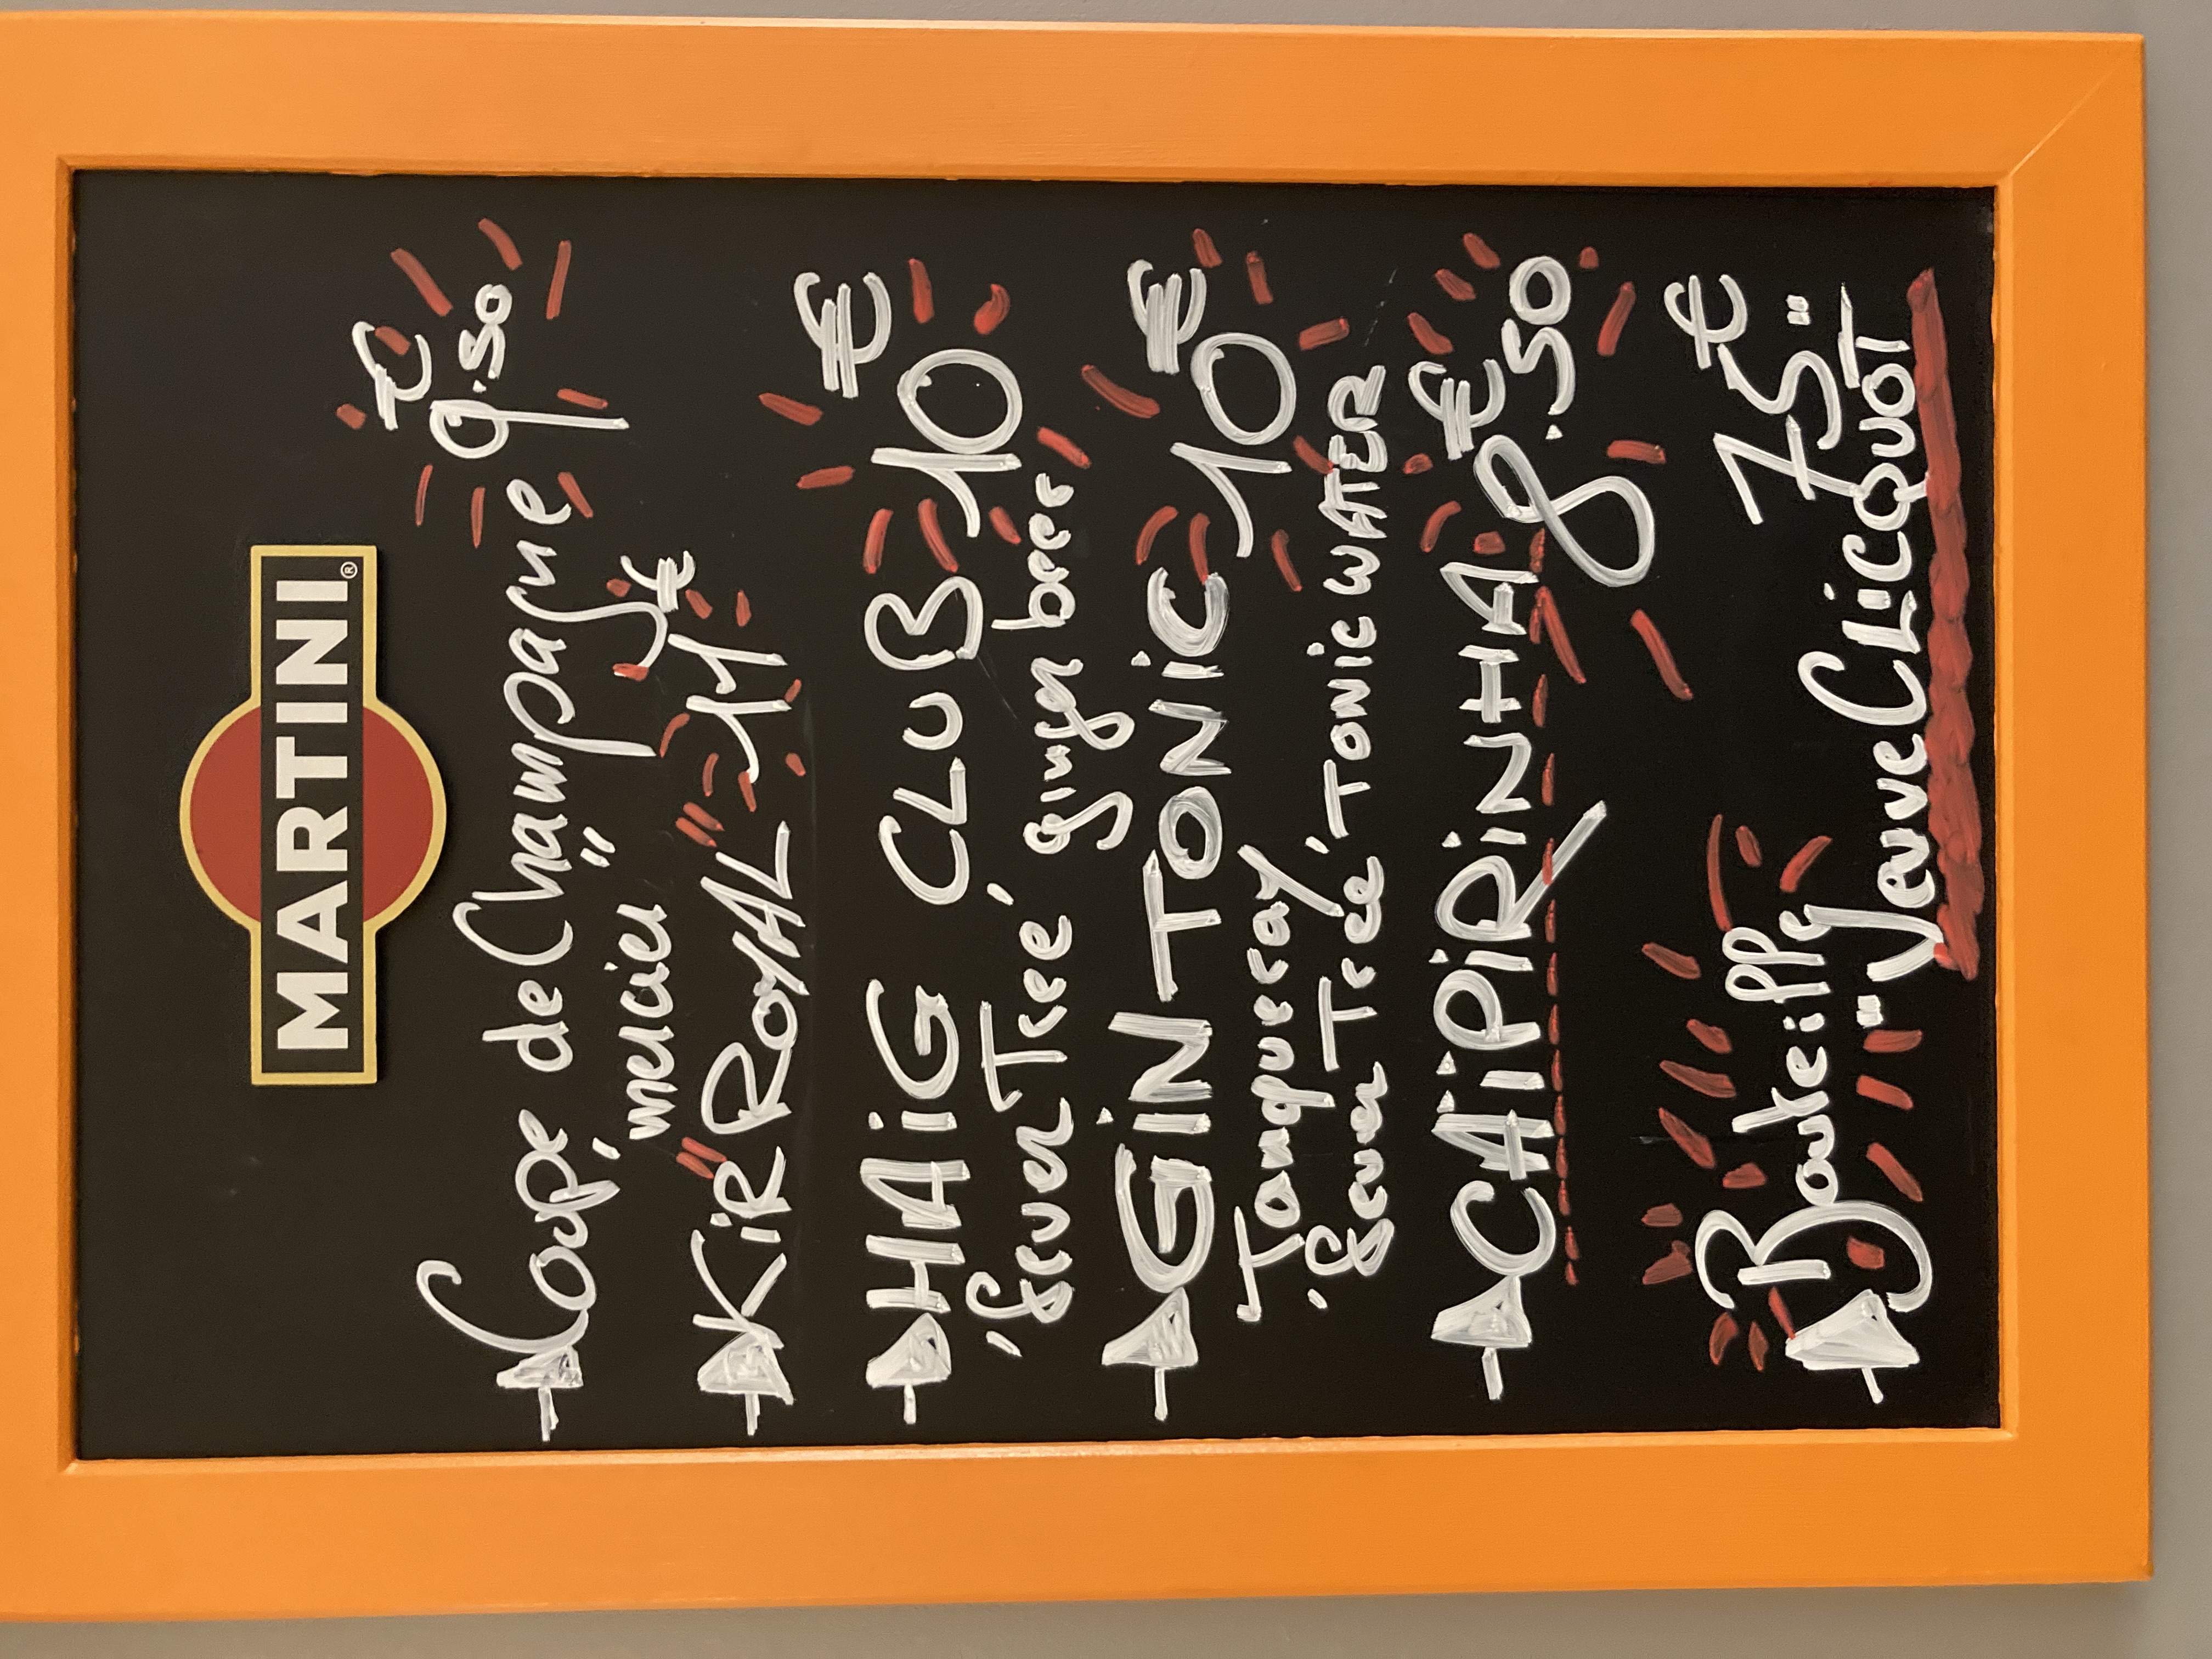 MARTINI®
Coupe de Champagne 9.50 €
"mercier"
KiR ROYAL 11 €
HAiG CLUB 10 €
'Fever Tree' ginger beer
GiN-TONiC 10 €
Tanqueray
'Fever Tree' TONiC WATER
CAiPiRiNHA 8.50 €
Bouteille 75 €
"Veuve CLiCQUOT"